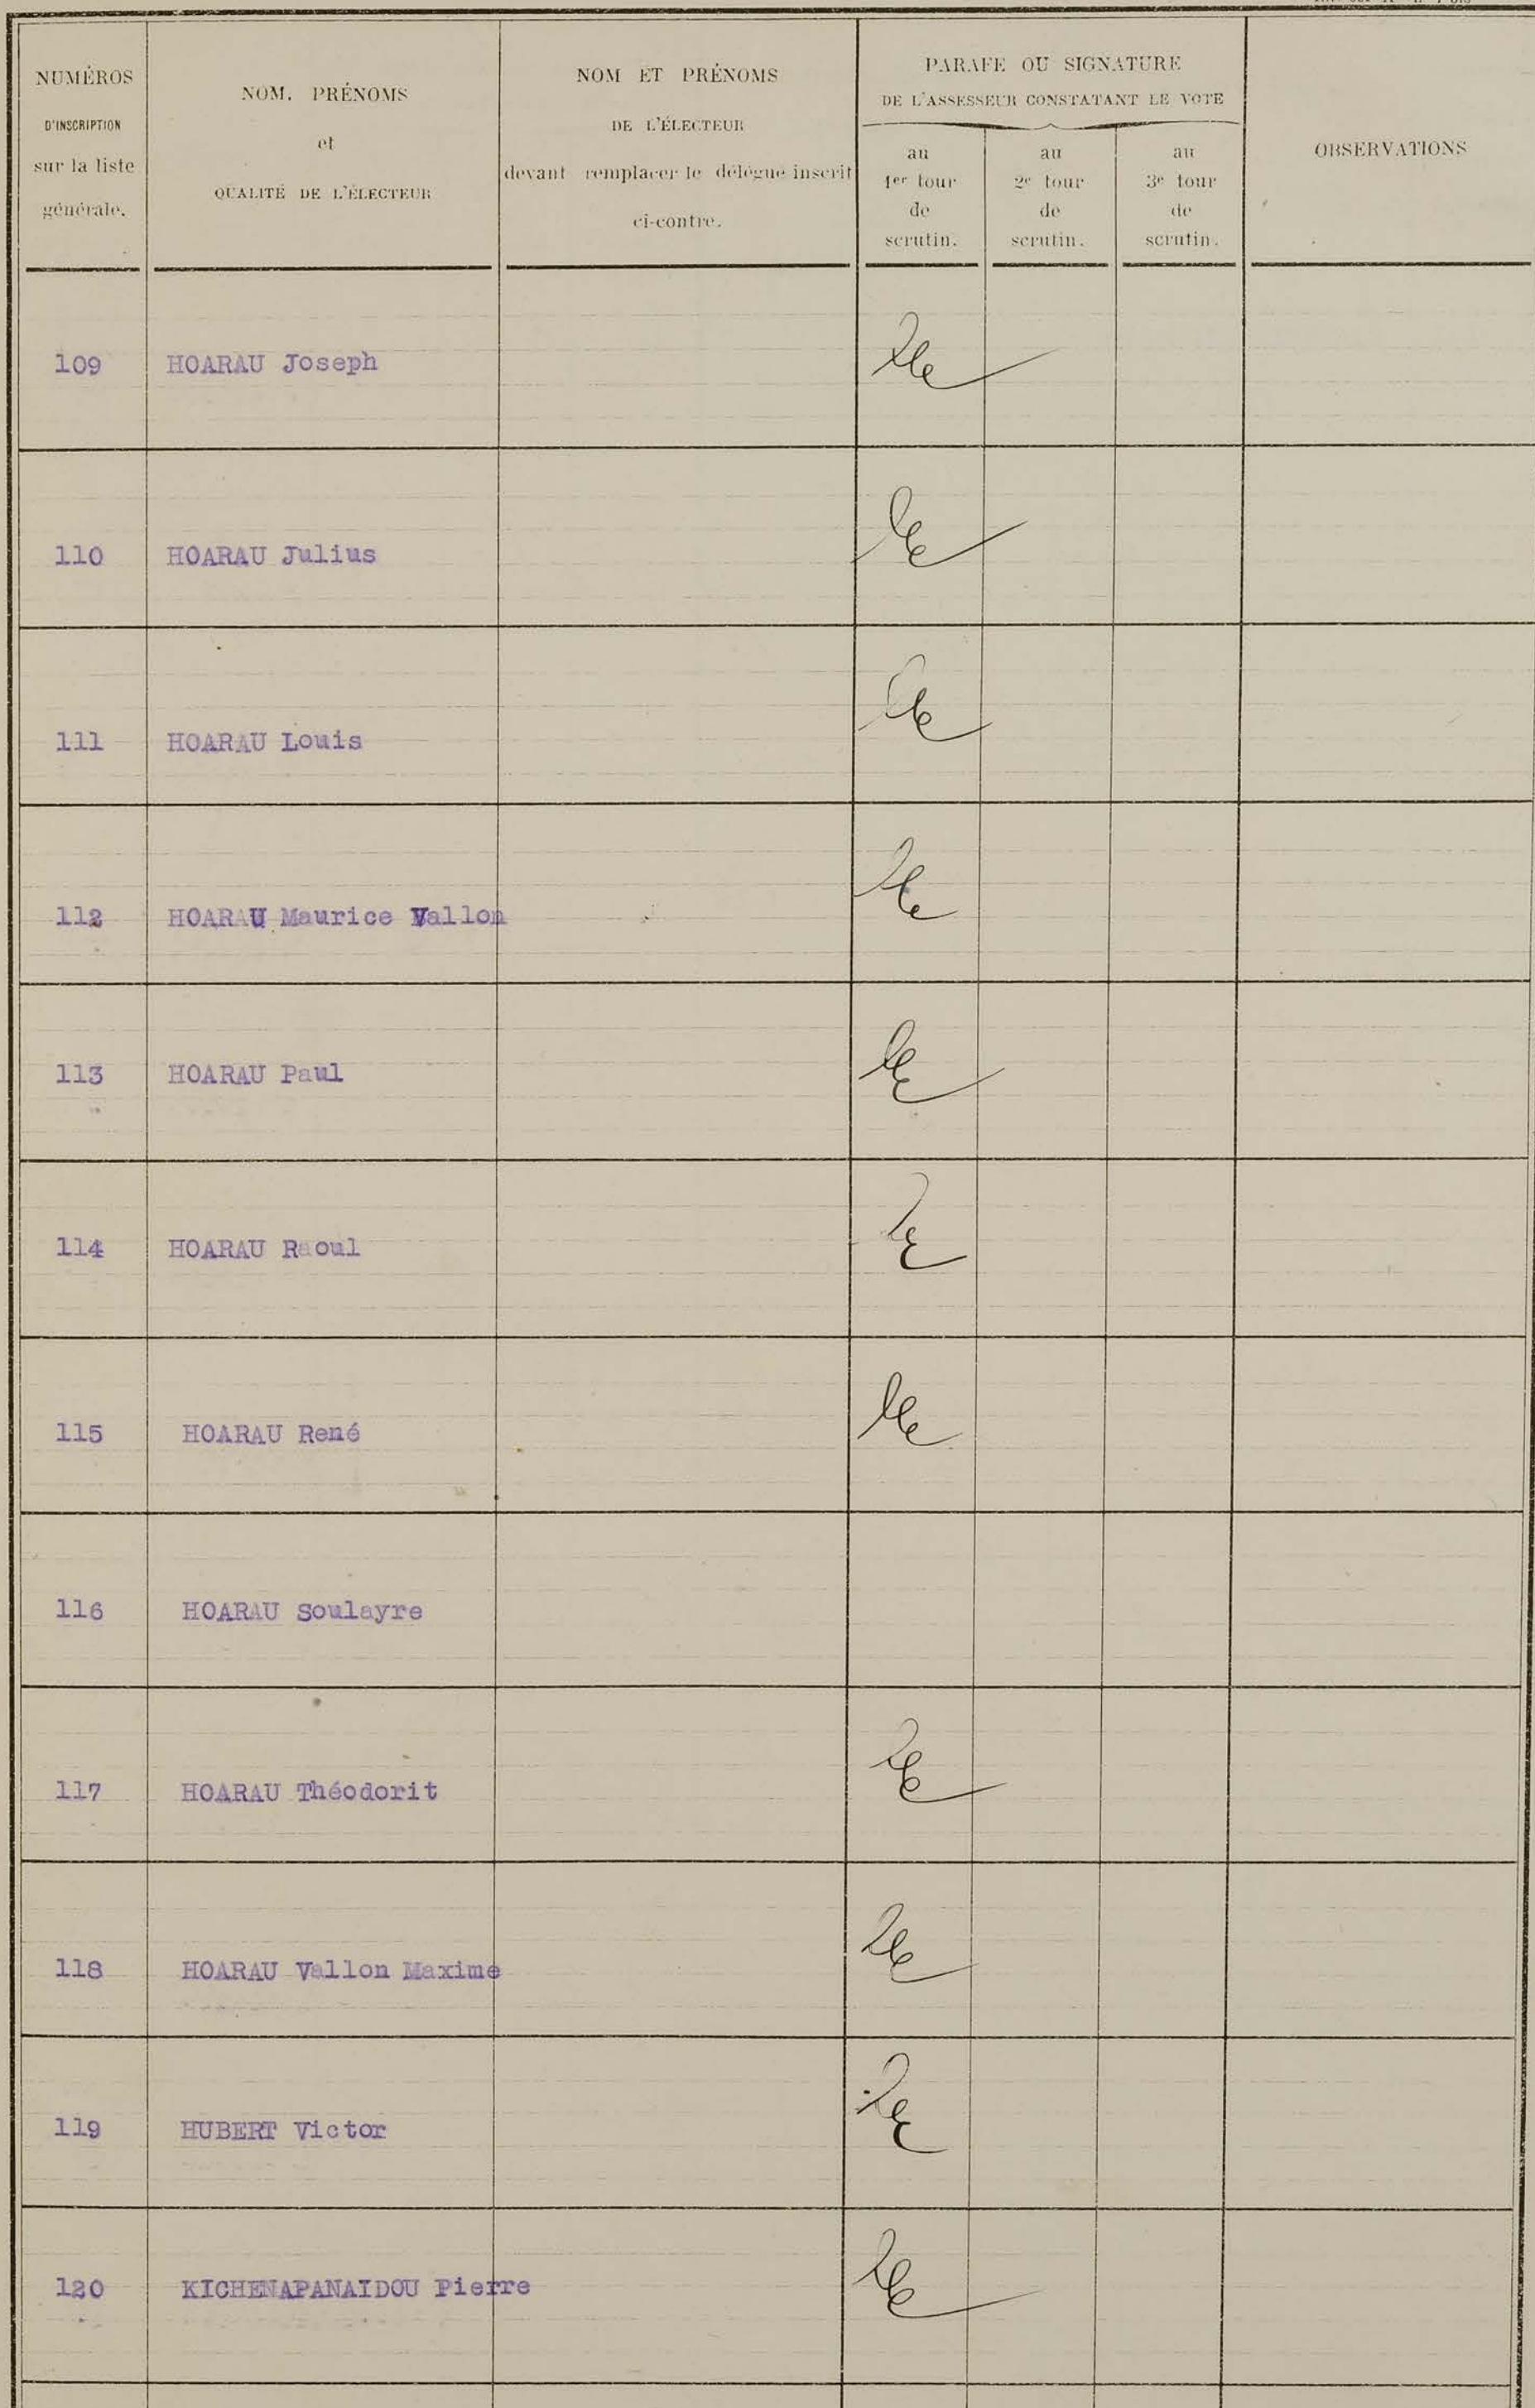 NUMÉROS
D'INSCRIPTION
sur la liste
générale.
NOM, PRÉNOMS
et
QUALITÉ DE L'ÉLECTEUR
NOM ET PRÉNOMS
DE L'ÉLECTEUR
devant remplacer le délégué inscrit
ci-contre.
PARAFE OU SIGNATURE
DE L'ASSESSEUR CONSTATANT LE VOTE
au
1er tour
de
scrutin.
au
2e tour
de
scrutin.
au
3e tour
de
scrutin.
OBSERVATIONS
109 HOARAU Joseph
110 HOARAU Julius
111 HOARAU Louis
112 HOARAU Maurice Vallon
113 HOARAU Paul
114 HOARAU Raoul
115 HOARAU René
116 HOARAU Soulayre
117 HOARAU Théodorit
118 HOARAU Vallon Maxime
119 HUBERT Victor
120 KICHENAPANAIDOU Pierre